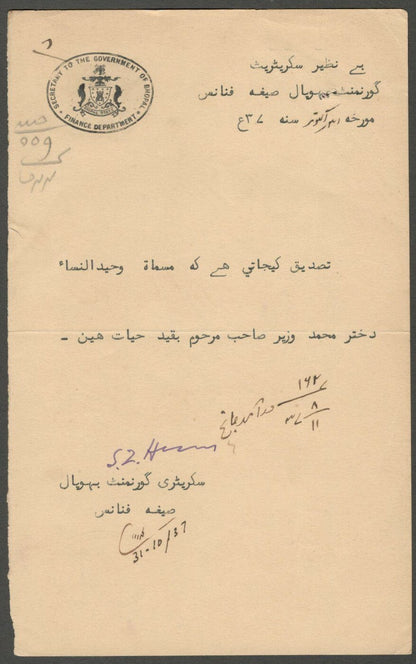 SECRETARY TO THE GOVERNMENT OF BHOPAL
FINANCE DEPARTMENT
بے نظیر سکریٹریٹ
گورنمنٹ بھوپال صیغہ فنانس
مورخہ اکتوبر سنہ ۳۷ع
۵۵۹
تصدیق کیجاتی ہے کہ مسماۃ وحیدالنساء
دختر محمد وزیر صاحب مرحوم بقید حیات ہیں -
۱۶۲
۸
۱۱
S.Z.
سکریٹری گورنمنٹ بھوپال
صیغہ فنانس
31-10/37